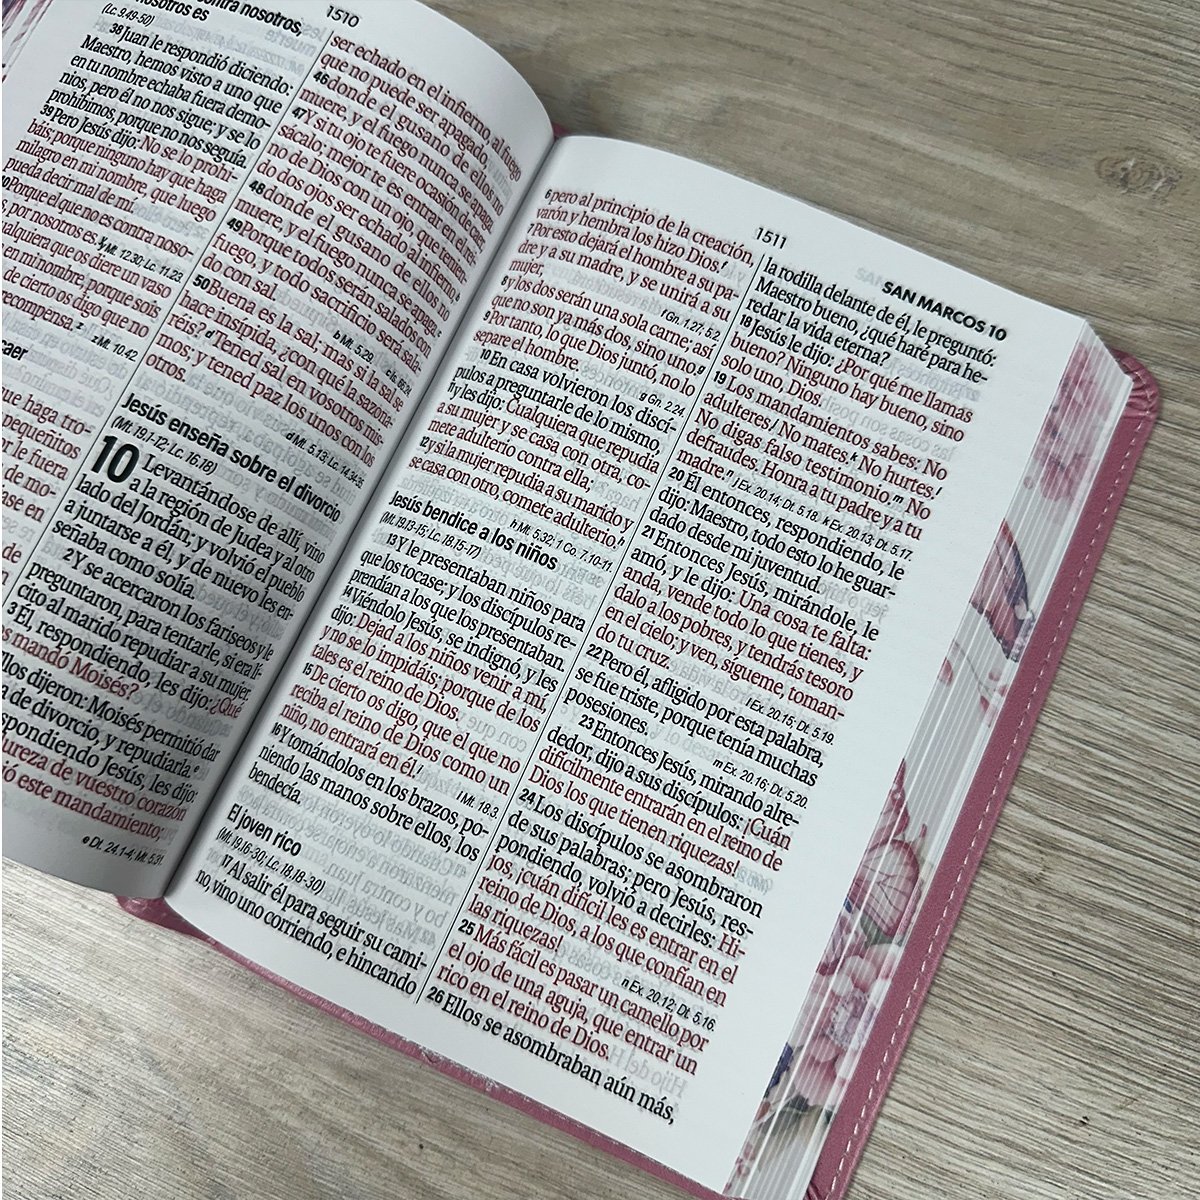 1510
contra nosotros,
nosotros es
(Lc. 9.49-50)
38 Juan le respondió diciendo:
Maestro, hemos visto a uno que
en tu nombre echaba fuera demo-
nios, pero él no nos sigue; y se lo
prohibimos, porque no nos seguía.
39 Pero Jesús dijo: No se lo prohi-
báis; porque ninguno hay que haga
milagro en mi nombre, que luego
pueda decir mal de mí.
Porque el que no es contra noso-
por nosotros es.
y Mt. 12.30; Lc. 11.23.
cualquiera que os diere un vaso
en mi nombre, porque sois
de cierto os digo que no
recompensa. z
z Mt. 10.42.
caer
que haga tro-
pequeñitos
le fuera
de mo-
en
ser echado en el infierno, al fuego
que no puede ser apagado,
46 donde el gusano de ellos no
muere, y el fuego nunca se apaga.
47 Y si tu ojo te fuere ocasión de caer,
sácalo; mejor te es entrar en el rei-
no de Dios con un ojo, que tenien-
do dos ojos ser echado al infierno,
48 donde el gusano de ellos no
muere, y el fuego nunca se apaga.
49 Porque todos serán salados con
fuego, y todo sacrificio será sala-
do con sal.
b Mt. 5.29. c Is. 66.24.
50 Buena es la sal; mas si la sal se
hace insípida, ¿con qué la sazona-
réis? d Tened sal en vosotros mis-
mos; y tened paz los unos con los
otros.
d Mt. 5.13; Lc. 14.34-35.
Jesús enseña sobre el divorcio
(Mt. 19.1-12; Lc. 16.18)
10 Levantándose de allí, vino
a la región de Judea y al otro
lado del Jordán; y volvió el pueblo
a juntarse a él, y de nuevo les en-
señaba como solía.
2 Y se acercaron los fariseos y le
preguntaron, para tentarle, si era lí-
cito al marido repudiar a su mujer.
3 Él, respondiendo, les dijo: ¿Qué
mandó Moisés?
dijeron: Moisés permitió dar
de divorcio, y repudiarla. e
respondiendo Jesús, les dijo:
dureza de vuestro corazón
este mandamiento;
e Dt. 24.1-4; Mt. 5.31.
1511
SAN MARCOS 10
6 pero al principio de la creación,
varón y hembra los hizo Dios. f
7 Por esto dejará el hombre a su pa-
dre y a su madre, y se unirá a su
mujer,
f Gn. 1.27; 5.2.
8 y los dos serán una sola carne; así
que no son ya más dos, sino uno. g
9 Por tanto, lo que Dios juntó, no lo
separe el hombre.
g Gn. 2.24.
10 En casa volvieron los discí-
pulos a preguntarle de lo mismo,
11 y les dijo: Cualquiera que repudia
a su mujer y se casa con otra, co-
mete adulterio contra ella;
12 y si la mujer repudia a su marido y
se casa con otro, comete adulterio. h
h Mt. 5.32; 1 Co. 7.10-11.
Jesús bendice a los niños
(Mt. 19.13-15; Lc. 18.15-17)
13 Y le presentaban niños para
que los tocase; y los discípulos re-
prendían a los que los presentaban.
14 Viéndolo Jesús, se indignó, y les
dijo: Dejad a los niños venir a mí,
y no se lo impidáis; porque de los
tales es el reino de Dios.
15 De cierto os digo, que el que no
reciba el reino de Dios como un
niño, no entrará en él. i
i Mt. 18.3.
16 Y tomándolos en los brazos, po-
niendo las manos sobre ellos, los
bendecía.
El joven rico
(Mt. 19.16-30; Lc. 18.18-30)
17 Al salir él para seguir su cami-
no, vino uno corriendo, e hincando
la rodilla delante de él, le preguntó:
Maestro bueno, ¿qué haré para he-
redar la vida eterna?
18 Jesús le dijo: ¿Por qué me llamas
bueno? Ninguno hay bueno, sino
solo uno, Dios.
19 Los mandamientos sabes: No
adulteres. j No mates. k No hurtes. l
No digas falso testimonio. m No
defraudes. Honra a tu padre y a tu
madre. n
j Ex. 20.14; Dt. 5.18. k Ex. 20.13; Dt. 5.17.
20 Él entonces, respondiendo, le
dijo: Maestro, todo esto lo he guar-
dado desde mi juventud.
21 Entonces Jesús, mirándole, le
amó, y le dijo: Una cosa te falta:
anda, vende todo lo que tienes, y
dalo a los pobres, y tendrás tesoro
en el cielo; y ven, sígueme, toman-
do tu cruz.
l Ex. 20.15; Dt. 5.19.
22 Pero él, afligido por esta palabra,
se fue triste, porque tenía muchas
posesiones.
m Ex. 20.16; Dt. 5.20.
23 Entonces Jesús, mirando alre-
dedor, dijo a sus discípulos: ¡Cuán
difícilmente entrarán en el reino de
Dios los que tienen riquezas!
24 Los discípulos se asombraron
de sus palabras; pero Jesús, res-
pondiendo, volvió a decirles: Hi-
jos, ¡cuán difícil les es entrar en el
reino de Dios, a los que confían en
las riquezas!
n Ex. 20.12; Dt. 5.16.
25 Más fácil es pasar un camello por
el ojo de una aguja, que entrar un
rico en el reino de Dios.
26 Ellos se asombraban aún más,